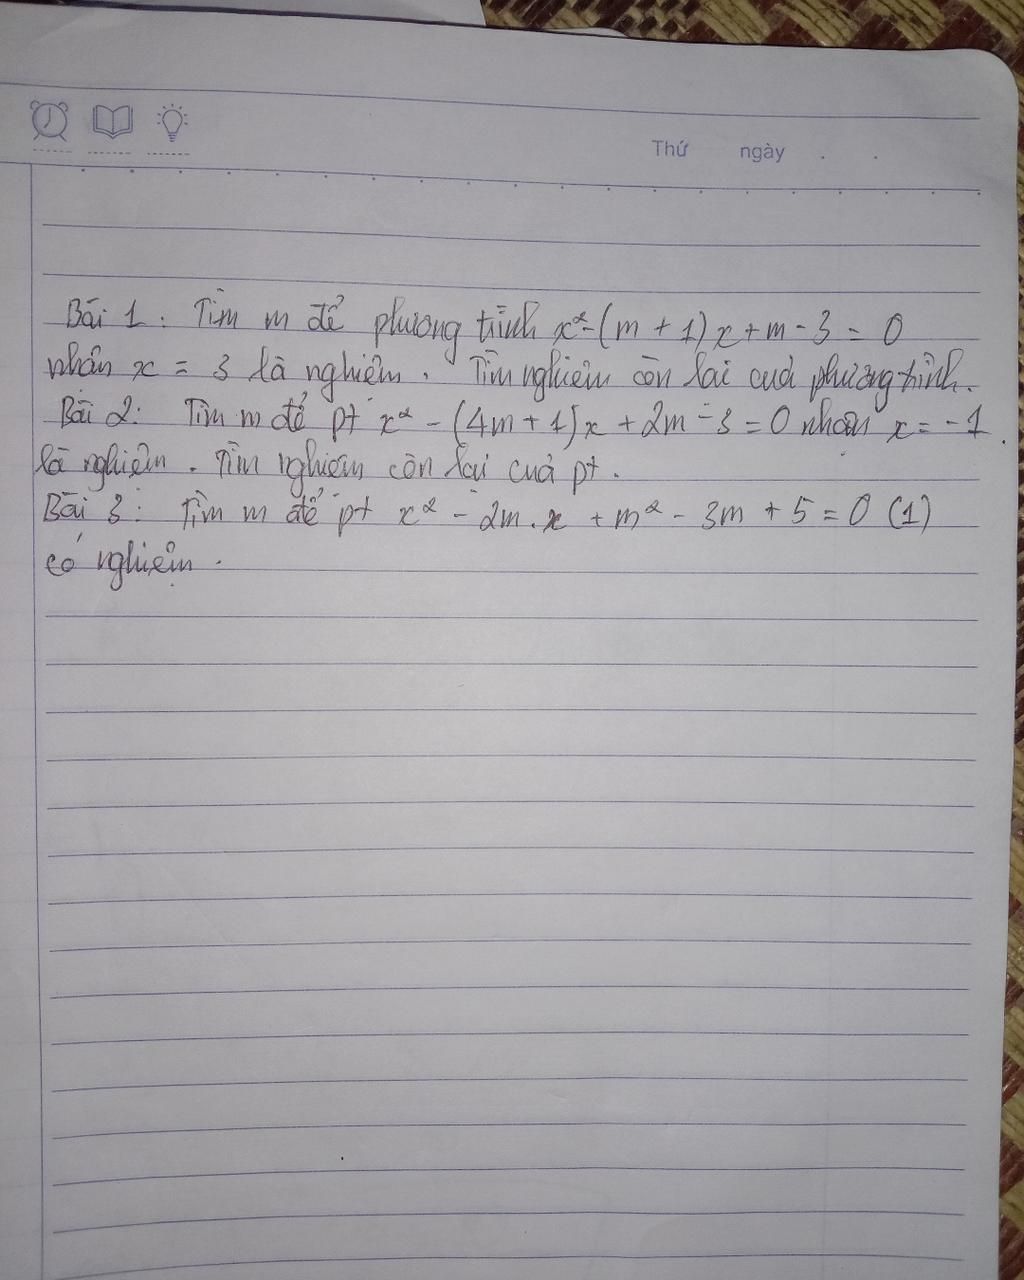 Thứ ngày
Bài 1: Tìm m để phương trình x² - (m + 1) x + m - 3 = 0
nhận x = 3 là nghiệm. Tìm nghiệm còn lại của phương trình.
Bài 2: Tìm m để pt x² - (4m + 1) x + 2m - 3 = 0 nhận x = -1
là nghiệm. Tìm nghiệm còn lại của pt.
Bài 3: Tìm m để pt x² - 2m.x + m² - 3m + 5 = 0 (1)
có nghiệm.